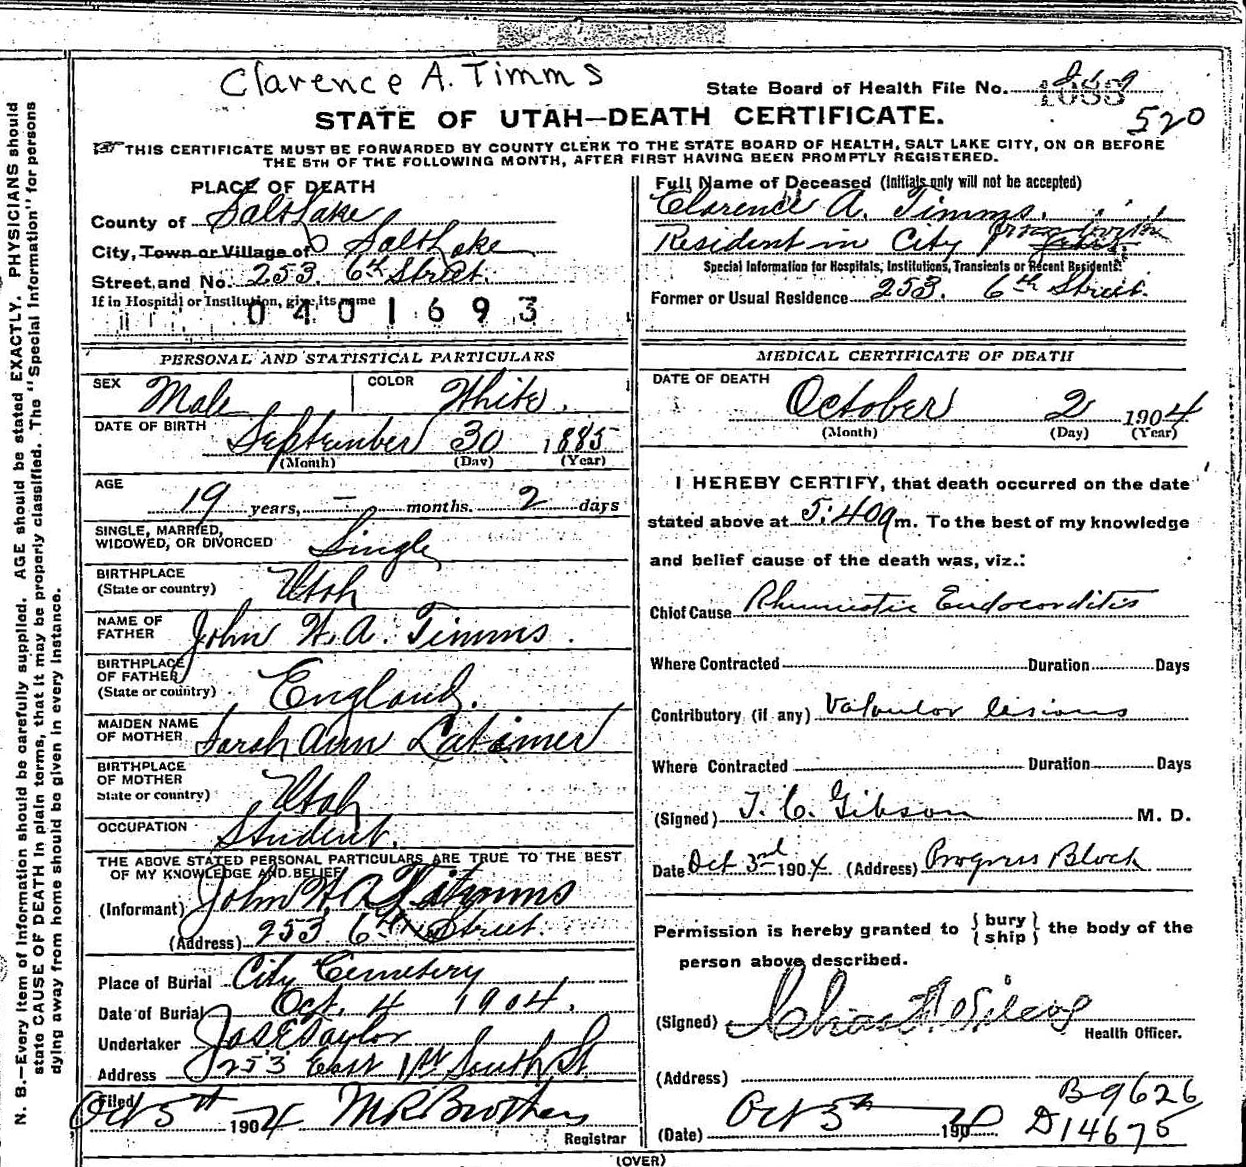 Clarence A. Timms
State Board of Health File No.
520
STATE OF UTAH—DEATH CERTIFICATE.
THIS CERTIFICATE MUST BE FORWARDED BY COUNTY CLERK TO THE STATE BOARD OF HEALTH, SALT LAKE CITY, ON OR BEFORE
THE 5TH OF THE FOLLOWING MONTH, AFTER FIRST HAVING BEEN PROMPTLY REGISTERED.
N. B.—Every item of information should be carefully supplied. AGE should be stated EXACTLY. PHYSICIANS should
state CAUSE OF DEATH in plain terms, that it may be properly classified. The "Special Information" for persons
dying away from home should be given in every instance.
PLACE OF DEATH
County of Salt Lake
City, Town or Village of Salt Lake
Street and No. 253. 6th Street.
If in Hospital or Institution, give its name
0401693
PERSONAL AND STATISTICAL PARTICULARS
SEX Male COLOR White.
DATE OF BIRTH September 30 1885
(Month) (Day) (Year)
AGE
19 years, — months. 2 days
SINGLE, MARRIED,
WIDOWED, OR DIVORCED Single
BIRTHPLACE
(State or country) Utah
NAME OF
FATHER John W. A. Timms.
BIRTHPLACE
OF FATHER
(State or country) England.
MAIDEN NAME
OF MOTHER Sarah Ann Latimer
BIRTHPLACE
OF MOTHER
State or country) Utah
OCCUPATION Student.
THE ABOVE STATED PERSONAL PARTICULARS ARE TRUE TO THE BEST
OF MY KNOWLEDGE AND BELIEF
(Informant) John W. A. Timms
(Address) 253 6th Street.
Place of Burial City Cemetery
Date of Burial Oct. 4 1904.
Undertaker Jos E Taylor
Address 253 East 1st South St
Filed
Oct 5th 1904 M R Brothers
Registrar
Full Name of Deceased (Initials only will not be accepted)
Clarence A. Timms.
Resident in City
Special Information for Hospitals, Institutions, Transients or Recent Residents.
Former or Usual Residence 253. 6th Street.
MEDICAL CERTIFICATE OF DEATH
DATE OF DEATH
October 2 1904
(Month) (Day) (Year)
I HEREBY CERTIFY, that death occurred on the date
stated above at 5:40 a m. To the best of my knowledge
and belief cause of the death was, viz.:
Chief Cause Rhumatic Endocarditis
Where Contracted Duration Days
Contributory (if any) Valvular lesions
Where Contracted Duration Days
(Signed) T. C. Gibson M. D.
Date Oct 3rd 1904. (Address) Progress Block
Permission is hereby granted to {bury
ship} the body of the
person above described.
(Signed)
Health Officer.
(Address)
B9626
(Date) Oct 5th 190
D14675
(OVER)